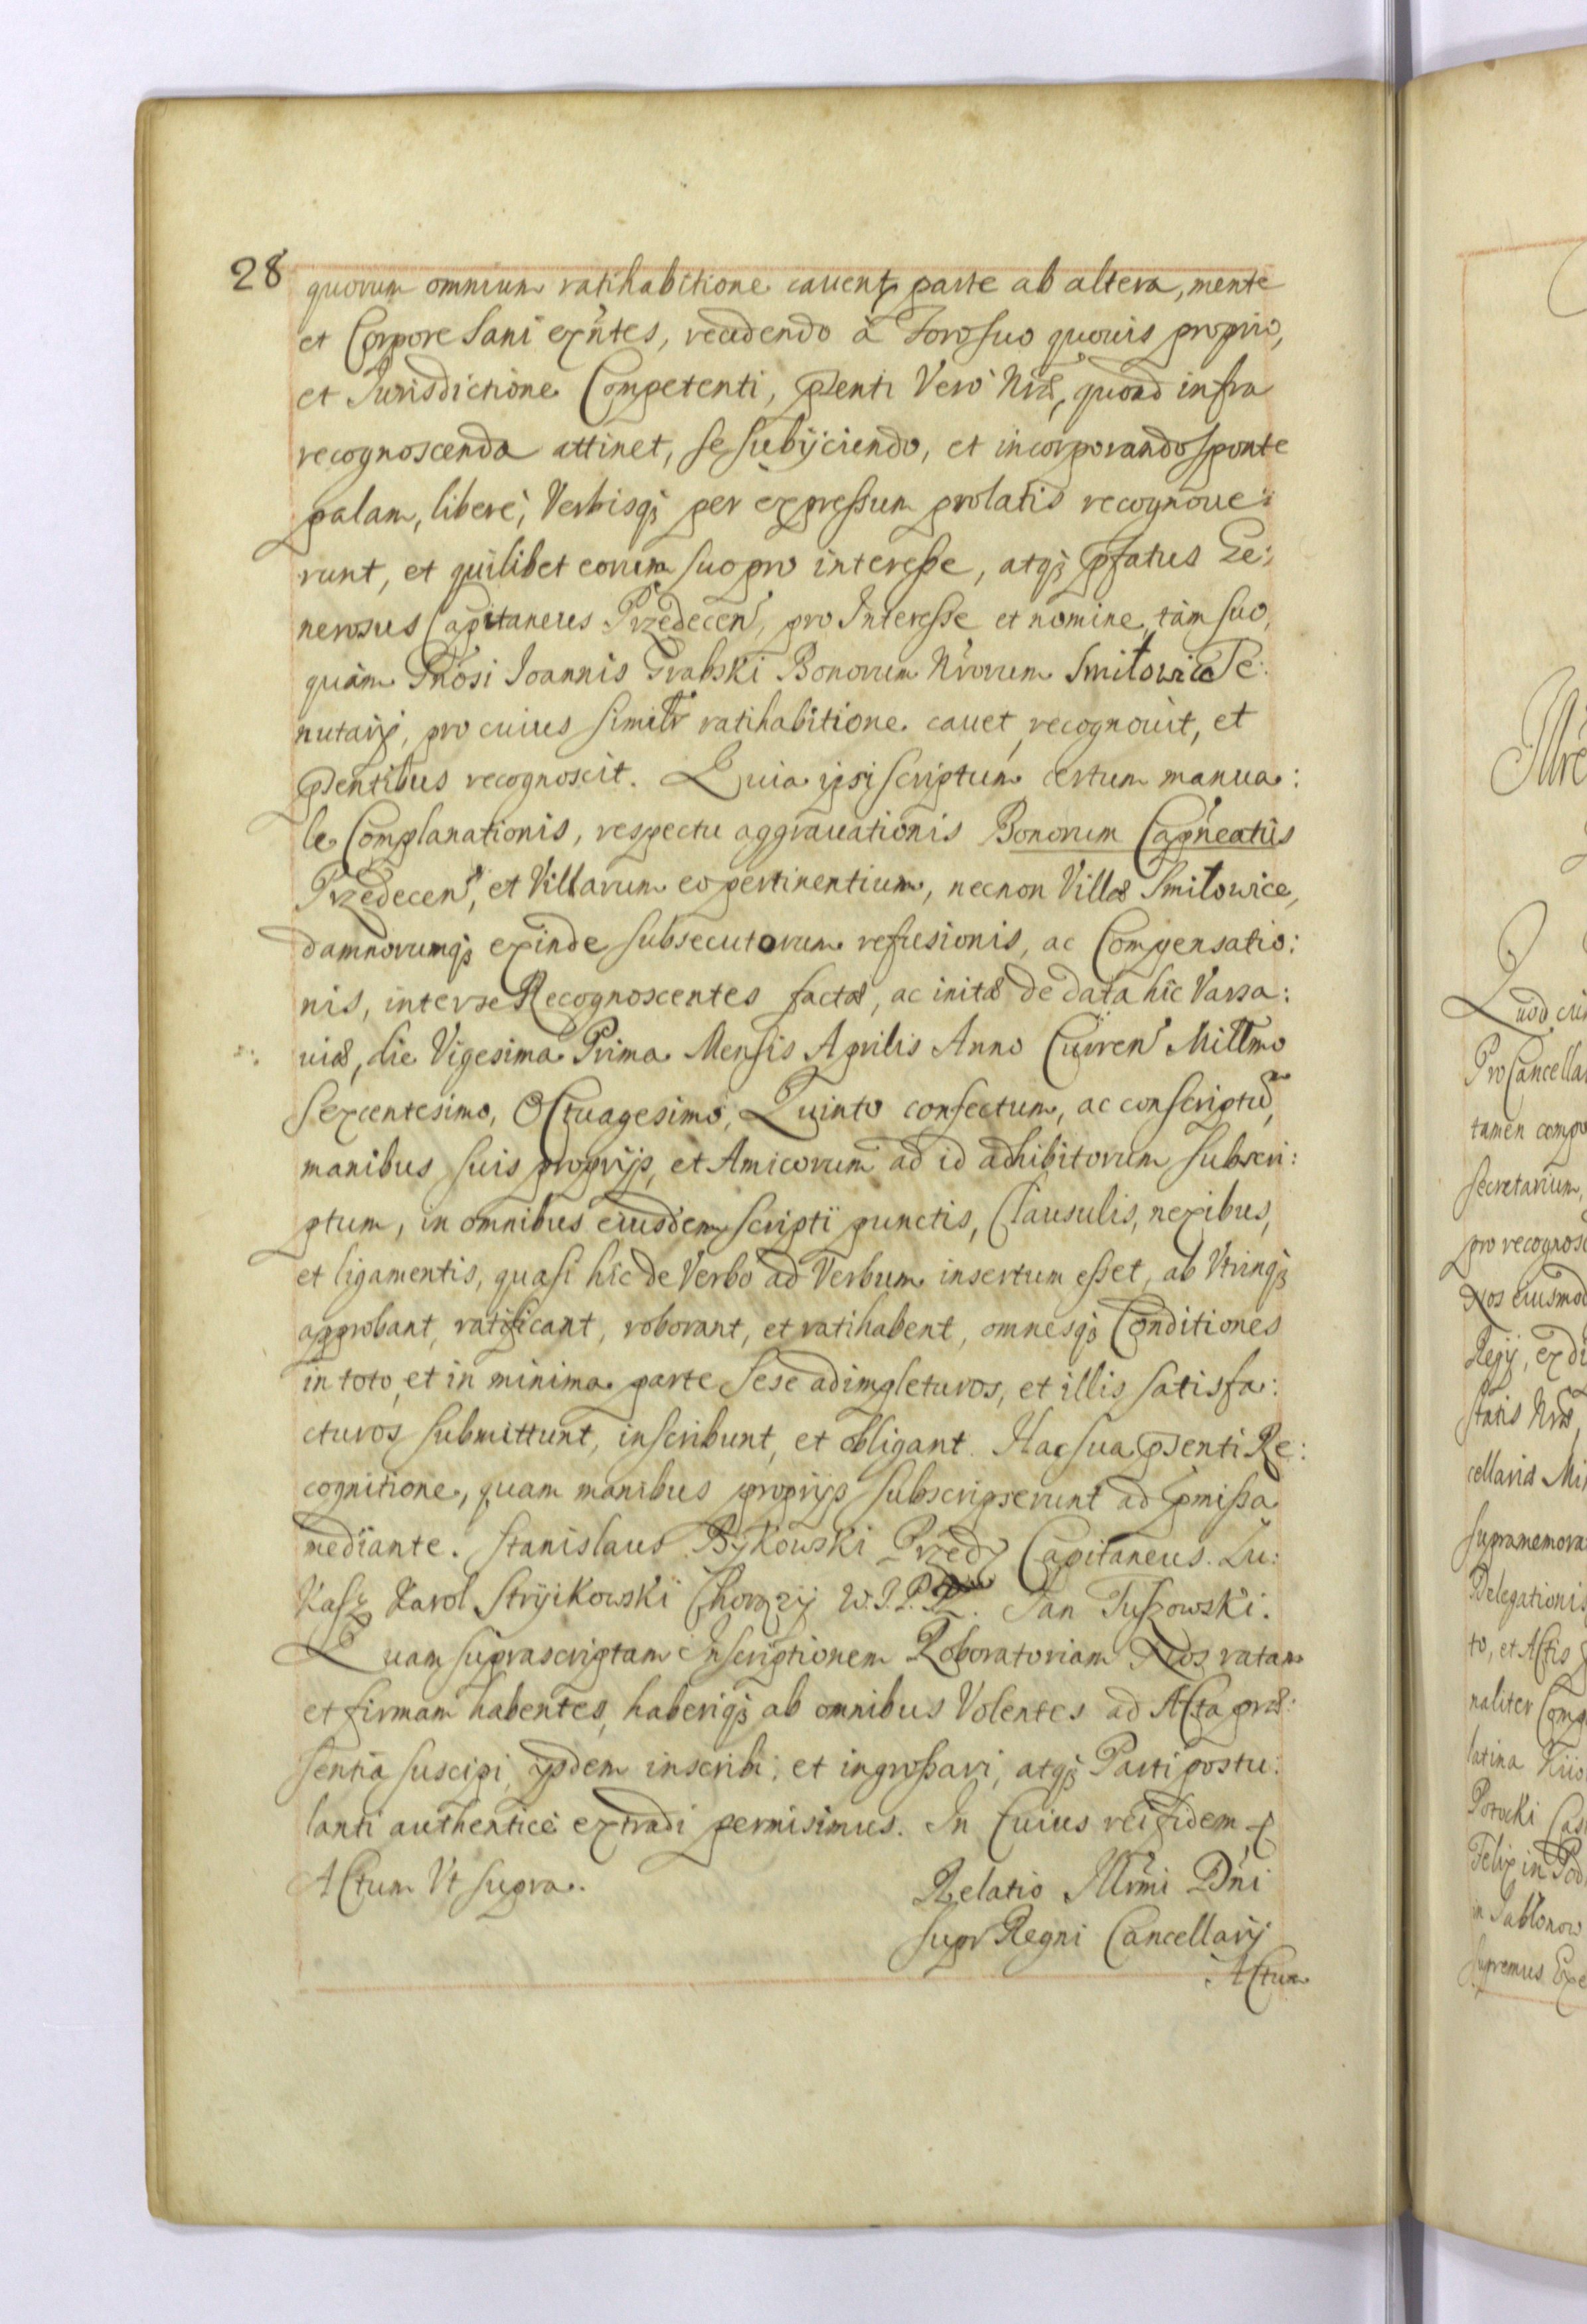 28
quorum omnium ratihabitione cauent, parte ab altera, mente
et Corpore sani exñtes, recedendo à Foro suo quouis proprio,
et Jurisdictione Competenti, pñti Verò Nræ, quoad infra
recognoscenda attinet, se subijciendo, et incorporando sponte
palam, liberè, Verbisq; per expressum prolatis recognoue:
runt, et quilibet eorum suo pro interesse, atq; pfatus Ge:
nerosus Capitaneus Przedecen, pro Interesse et nomine, tàm suo,
quàm Gnosi Joannis Grabski Bonorum Nrorum Smiłowice Te:
nutarij, pro cuius similr ratihabitione cauet, recognouit, et
pñtibus recognoscit. Quia ipsi scriptum certum manua:
le Complanationis, respectu aggrauationis Bonorum Capñeatus
Przedecen, et Villarum eo pertinentium, necnon Villæ Smiłowice,
damnorumq; exinde subsecutorum refusionis, ac Compensatio:
nis, inter se Recognoscentes factæ, ac initæ de data hîc Varsa:
uiæ, die Vigesima Prima Mensis Aprilis Anno Curren Millmo
Sexcentesimo, Octuagesimo, Quinto confectum, ac conscriptũ,
manibus suis proprijs, et Amicorum ad id adhibitorum subscri:
ptum, in omnibus eiusdem scripti punctis, Clausulis, nexibus,
et ligamentis, quasi hîc de Verbo ad Verbum insertum esset, ab Vtrinq;
approbant, ratificant, roborant, et ratihabent, omnesq; Conditiones
in toto, et in minima parte sese adimpleturos, et illis satisfa:
cturos submittunt, inscribunt, et obligant. Hac sua pñti Re:
cognitione, quam manibus proprijs subscripserunt ad pmissa
mediante. Stanislaus Bykowski Przed Capitaneus. Łu:
kasz Karol Stryikowski Chorąży W. J. P. Jan Tuszowski.
Quam suprascriptam Inscriptionem Roboratoriam Nos ratam
et firmam habentes, haberiq; ab omnibus Volentes ad Acta præ:
sentia suscipi, ijsdem inscribi, et ingrossari, atq; Parti postu:
lanti authenticè extradi permisimus. In Cuius rei fidem, &
Actum Vt supra.
Relatio Illrmi Dñi
Supr Regni Cancellarij
Actum